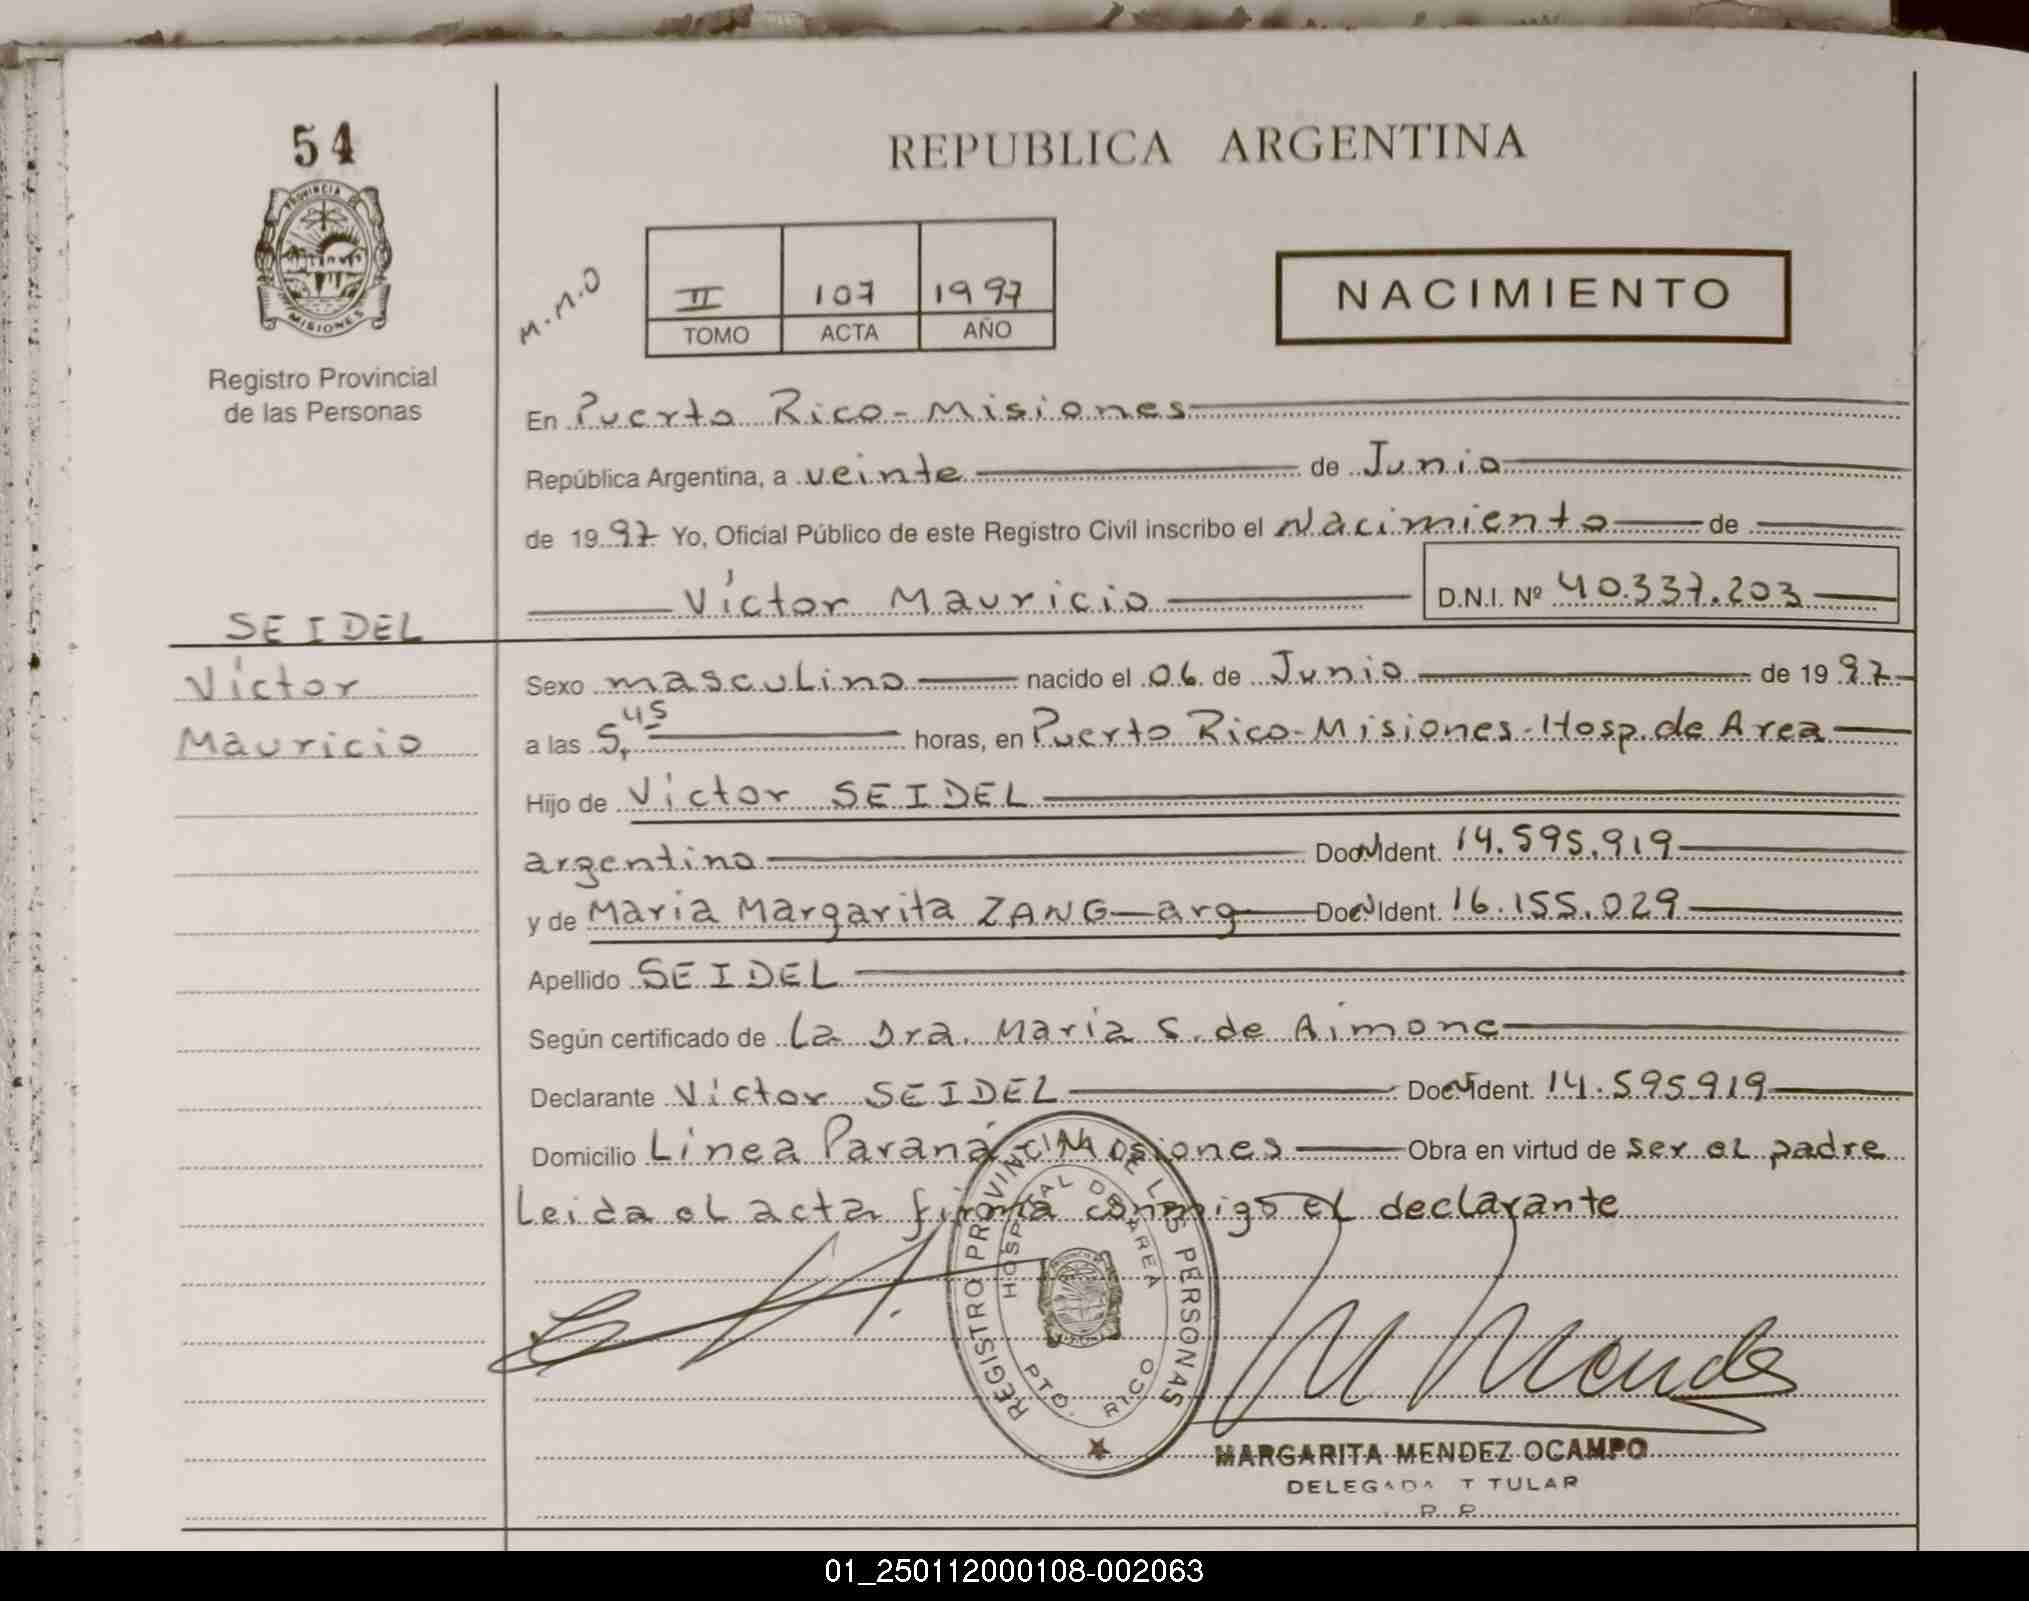 54
REPUBLICA ARGENTINA
PROVINCIA DE
MISIONES
Registro Provincial
de las Personas
M.M.O
II 107 1997
TOMO ACTA AÑO
NACIMIENTO
En Puerto Rico - Misiones
República Argentina, a veinte de Junio
de 1997 Yo, Oficial Público de este Registro Civil inscribo el Nacimiento de
Víctor Mauricio D.N.I. Nº 40.337.203
SEIDEL
Víctor
Mauricio
Sexo masculino nacido el 06 de Junio de 1997
a las 5,45 horas, en Puerto Rico - Misiones - Hosp. de Area
Hijo de Victor SEIDEL
argentino Ident. 14.595.919
y de María Margarita ZANG arg Ident. 16.155.029
Apellido SEIDEL
Según certificado de La Dra. María S. de Aimone
Declarante Victor SEIDEL Ident. 14.595.919
Domicilio Línea Paraná Misiones Obra en virtud de ser el padre
Leida el acta firma conmigo el declarante
REGISTRO PROVINCIAL DE LAS PERSONAS
HOSPITAL DE AREA
PTO. RICO
M Mendez
MARGARITA MENDEZ OCAMPO
DELEGADA TITULAR
01_250112000108-002063